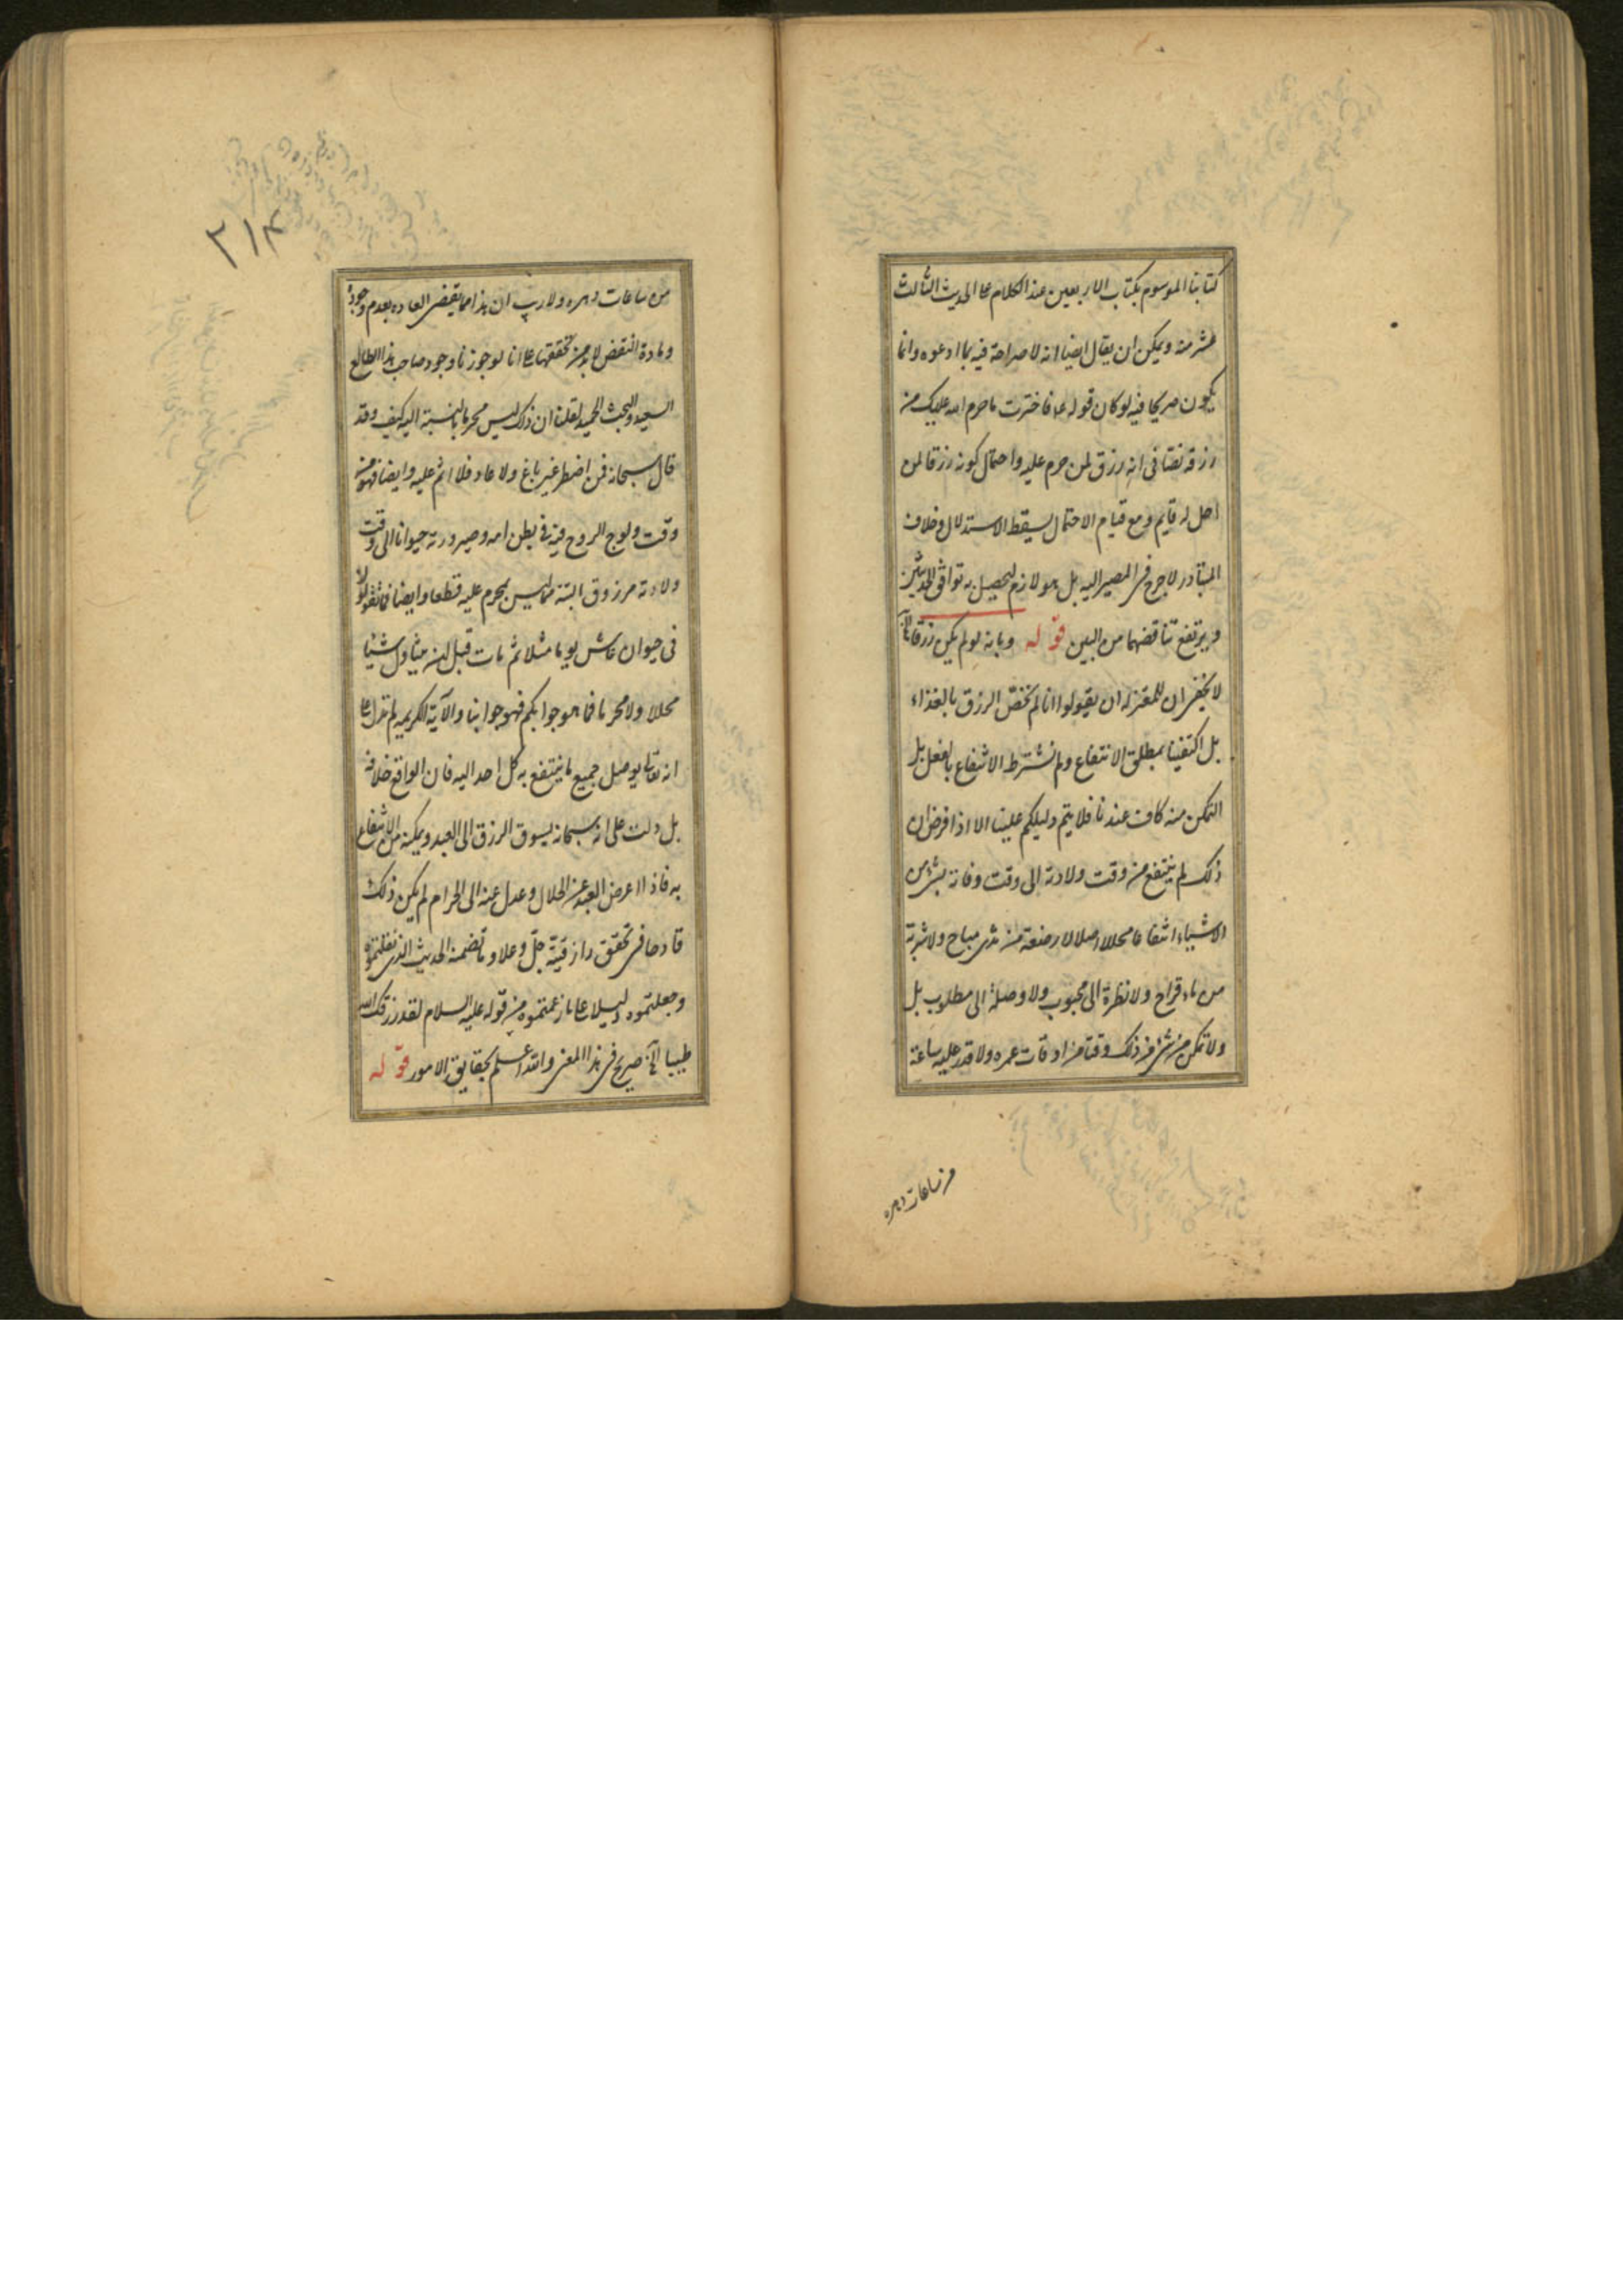 كتابنا الموسوم بكتاب الاربعين عند الكلام على الحديث الثالث
عشر منه ويمكن ان يقال ايضا انه لا صراحة فيه بما ادعوه وانما
يكون صريحا فيه لو كان قوله ع فاخترت ما حرم الله عليك من
رزقه نصا في انه رزق لمن حرم عليه واحتمال كونه رزقا لمن
احل له قايم ومع قيام الاحتمال يسقط الاستدلال وخلاف
المتبادر لا حرج في المصير اليه بل هو لازم ليحصل به توافق الحديثين
ويرتفع تناقضهما من البين قوله وبانه لو لم يكن رزقا الخ
لا يخفى ان للمعتزله ان يقولوا انا لم نخص الرزق بالغذاء
بل اكتفينا بمطلق الانتفاع ولم نشترط الانتفاع بالفعل بل
التمكن منه كاف عندنا فلا يتم دليلكم علينا الا اذا فرض ان
ذلك لم ينتفع من وقت ولادته الى وقت وفاته بشئ من
الاشياء انتفاعا محللا اصلا لا رضعة من ثدى مباح ولا شربة
من ماء قراح ولا نظرة الى محبوب ولا وصلة الى مطلوب بل
ولا تمكن من شئ من ذلك وقتا من اوقات عمره ولا قدر عليه ساعة
من ساعات دهره
٢١٤
من ساعات دهره ولا ريب ان هذا مما يقضى العاده بعدم وجوده
ومادة النقض لا بد من تحققها على انا لو جوزنا وجود صاحب هذا الطالع
السعيد والبخت الحميد لقلنا ان ذلك ليس محرما بالنسبة اليه كيف وقد
قال سبحانه فمن اضطر غير باغ ولا عاد فلا اثم عليه وايضا فهو من
وقت ولوج الروح فيه في بطن امه وصيرورته حيوانا الى وقت
ولادته مرزوق البتة بما ليس بمحرم عليه قطعا وايضا فما تقولون
في حيوان عاش يوما مثلا ثم مات قبل ان يتناول شيئا
محللا ولا محرما فما هو جوابكم فهو جوابنا والآية الكريمه لم تدل على
انه تعالى يوصل جميع ما ينتفع به كل احد اليه فان الواقع خلافه
بل دلت على انه سبحانه يسوق الرزق الى العبد ويمكنه من الانتفاع
به فاذا اعرض العبد عن الحلال وعدل عنه الى الحرام لم يكن ذلك
قادحا في تحقق رازقيته جل وعلا وما تضمنه الحديث الذى نقلتموه
وجعلتموه دليلا على ما زعمتموه من قوله عليه السلام لقد رزقك الله
طيبا الخ صريح في هذا المعنى والله اعلم بحقايق الامور قوله